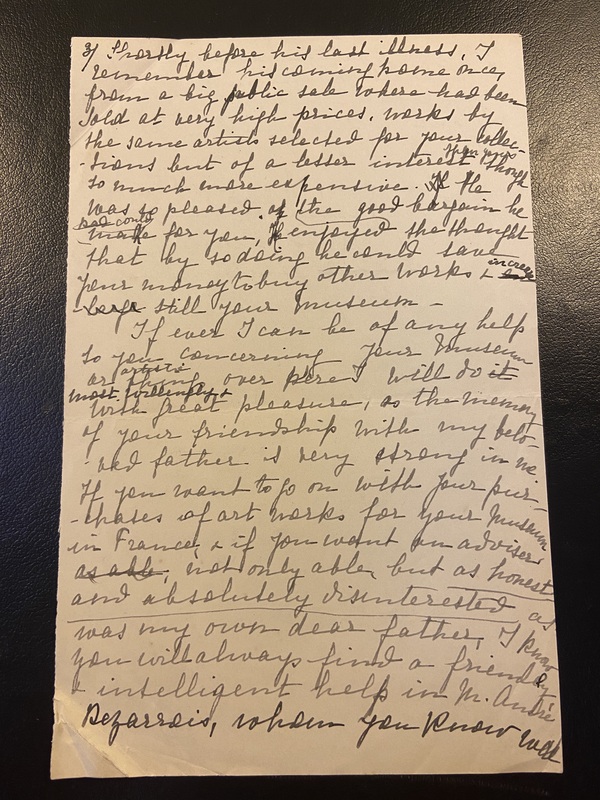 3) Shortly before his last illness, I
remember his coming home once,
from a big public sale where had been
sold at very high prices, works by
the same artists selected for your collec-
-tions but of a lesser interest than yours though
so much more expensive. He
was so pleased of the good bargain he
had could make for you, enjoyed the thought
that by so doing he could save
your money to buy other works & increase
-large still your museum -
If ever I can be of any help
to you concerning your Museum
or artistic thing over here I will do it
most willingly &
with great pleasure, as the memory
of your friendship with my belo-
-ved father is very strong in me.
If you want to go on with your pur-
-chases of art works for your Museum
in France, & if you want an adviser
as able, not only able, but as honest
and absolutely disinterested as
was my own dear father, I know
you will always find a friendly
& intelligent help in M. André
Dezarrois, whom you know well